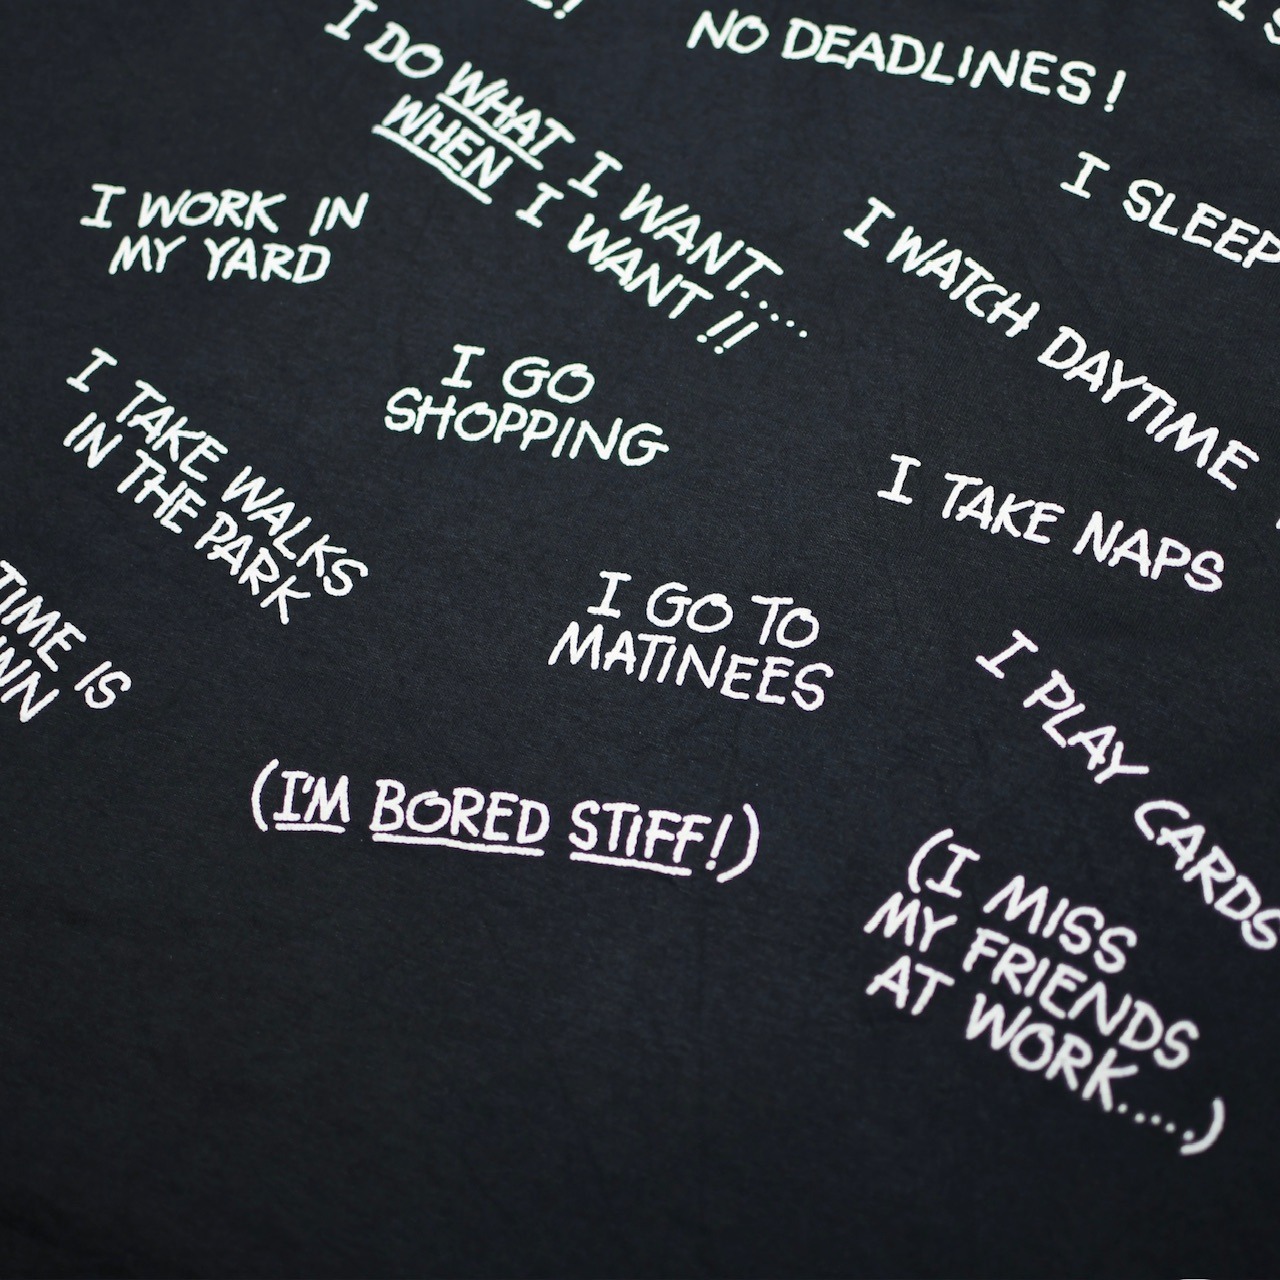 NO DEADLINES!
I DO WHAT I WANT.....
WHEN I WANT!!
I SLEEP
I WORK IN
MY YARD
I WATCH DAYTIME
I GO
SHOPPING
I TAKE WALKS
IN THE PARK
I TAKE NAPS
TIME IS
I GO TO
MATINEES
I PLAY CARDS
(I'M BORED STIFF!)
(I MISS
MY FRIENDS
AT WORK.....)